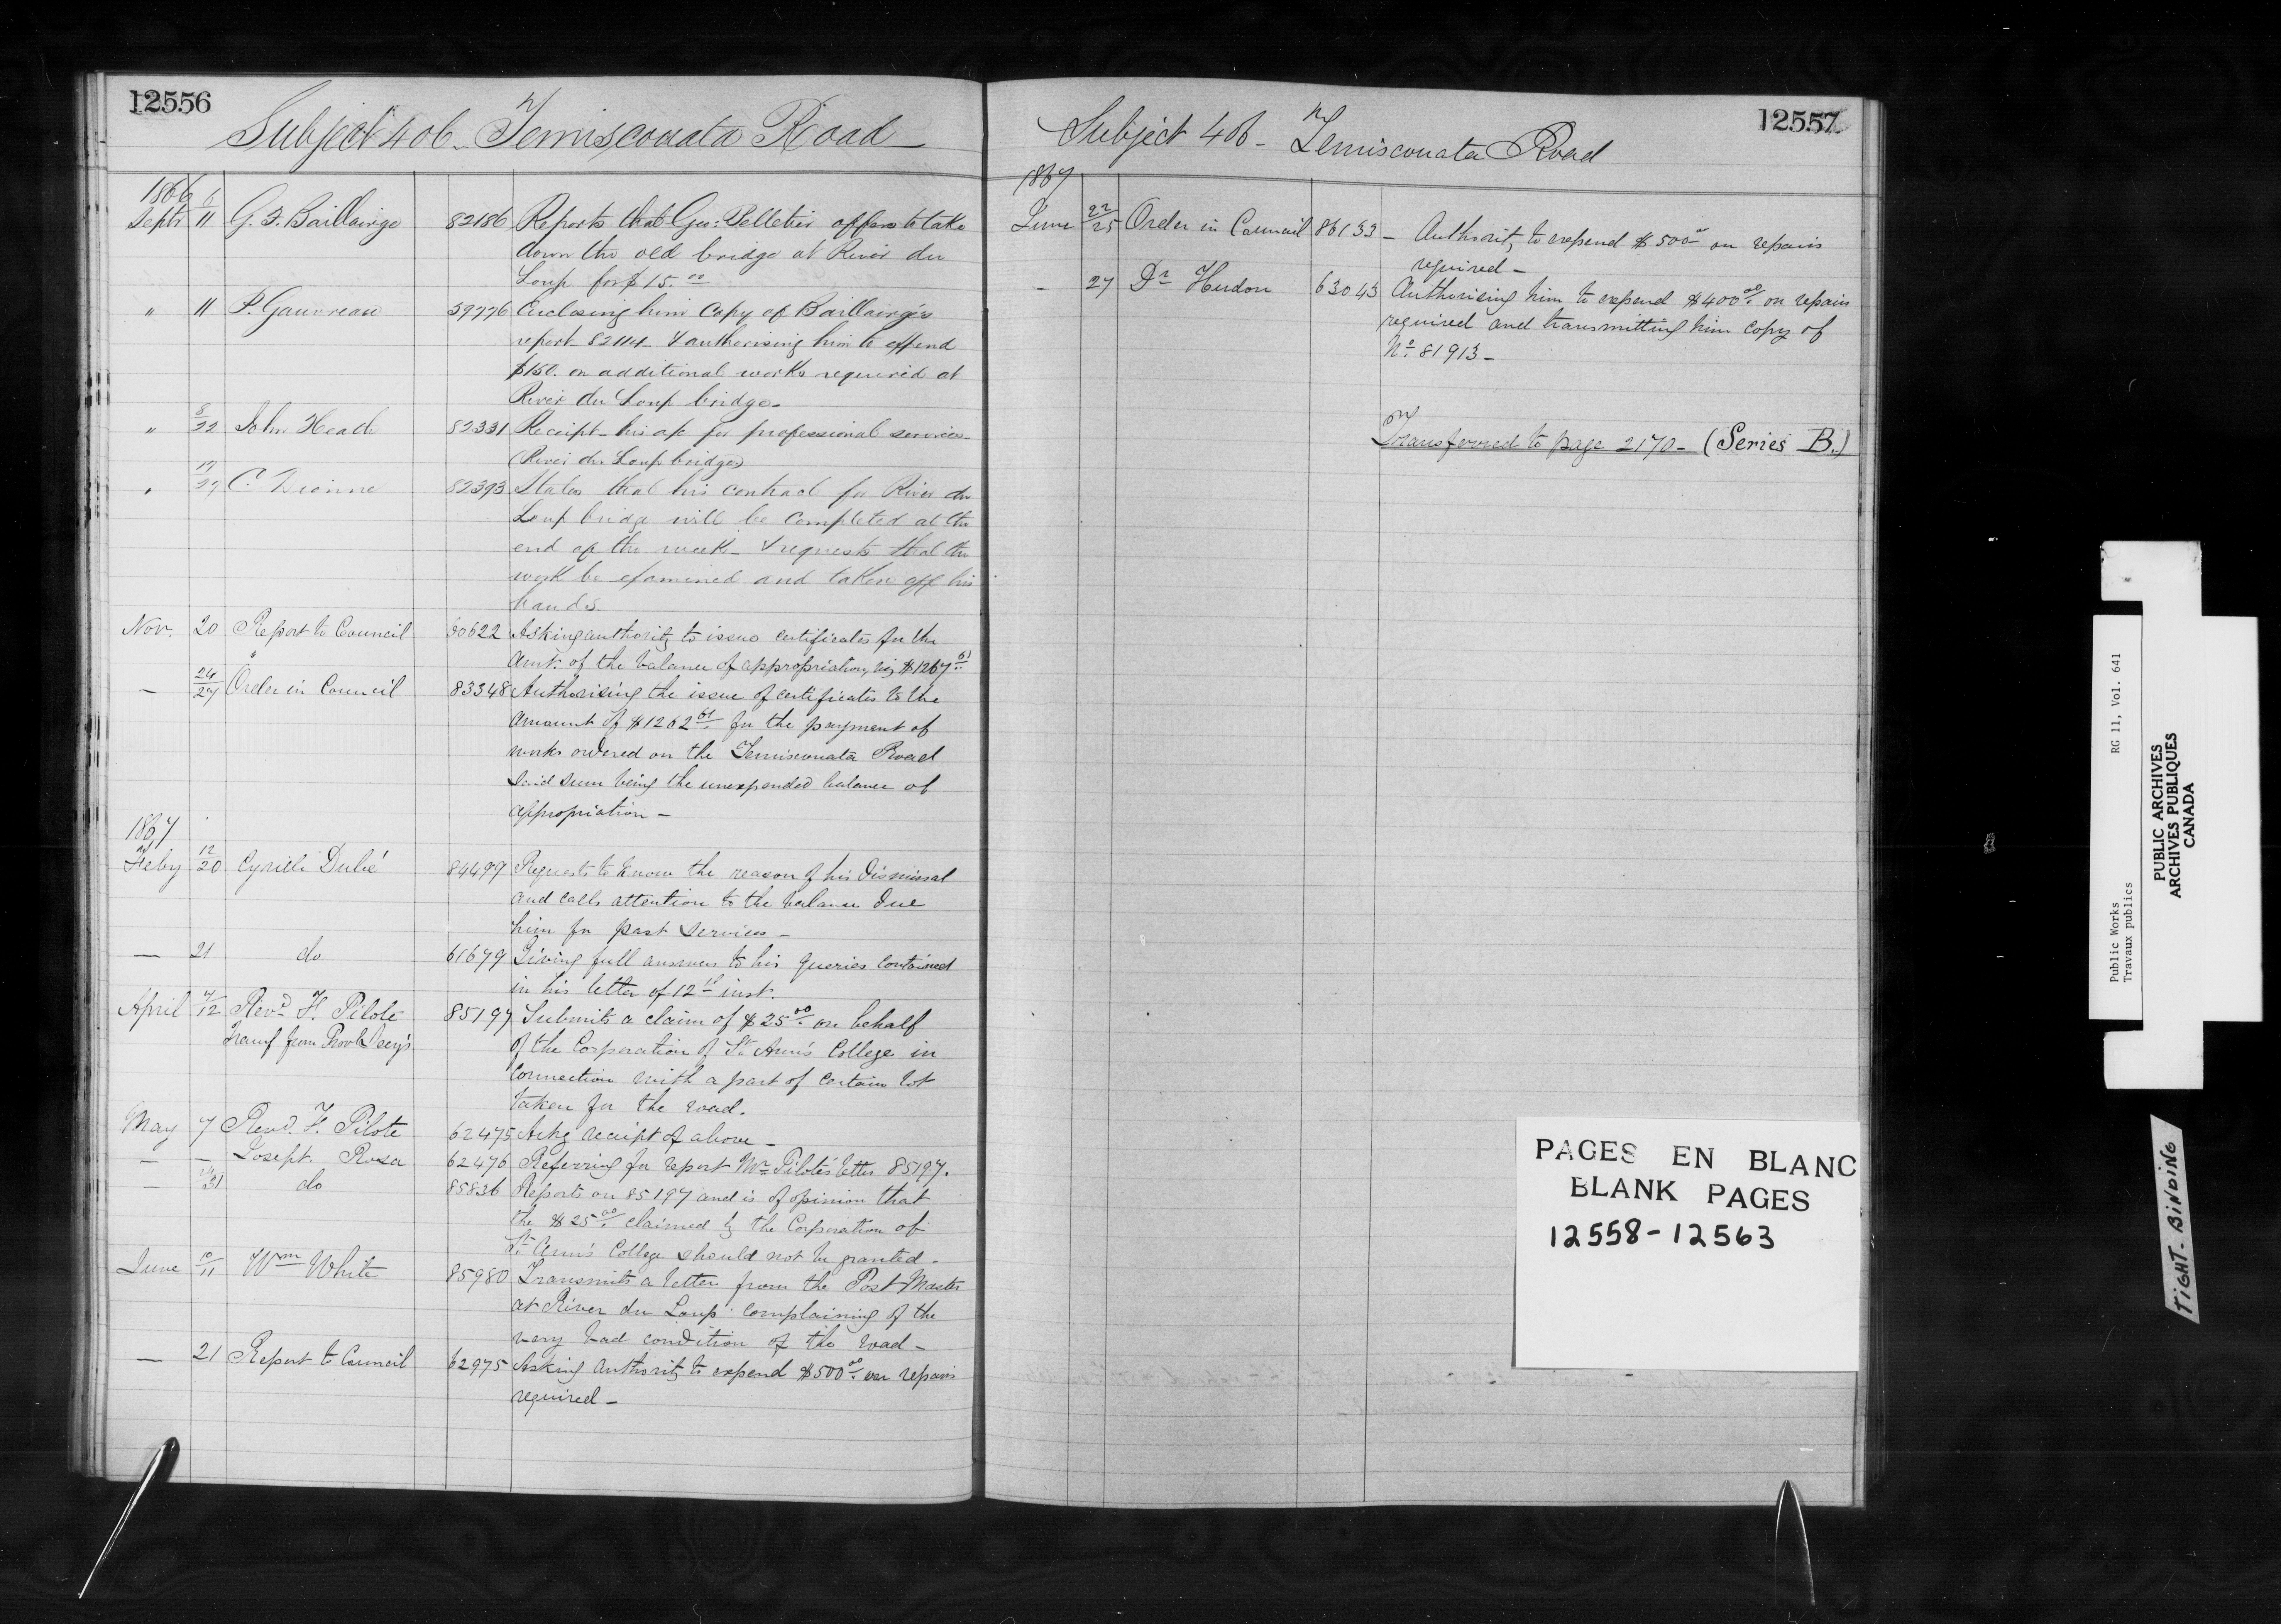 12556
Subject 406 - Temisconata Road
1866
Septr 6/11 G. F. Baillairge 82186 Reports that Geo: Pelletier offers to take
down the old bridge at River du
Loup for $15.00
" 11 P. Gauvreau 59776 Enclosing him Copy of Baillairgé's
report 82114 & authorising him to expend
$150. on additional works required at
River du Loup bridge -
" 8/22 John Heath 82331 Receipt his a/c for professional services -
(River du Loup bridge)
" 17/27 C. Dionne 82393 States that his contract for River du
Loup bridge will be completed at the
end of the week - & requests that the
work be examined and taken off his
hands.
Nov. 20 Report to Council 60622 Asking authority to issue certificates for the
Amt. of the balance of appropriation, viz $1267.61
— 24/27 Order in Council 83348 Authorising the issue of certificates to the
amount of $1262.61 for the payment of
works ordered on the Temisconata Road
said sum being the unexpended balance of
appropriation -
1867
Feby 12/20 Cyrille Dubé 84499 Requests to know the reason of his Dismissal
and calls attention to the balance due
him for past services -
— 21 do 61679 Giving full answers to his queries contained
in his letter of 12th inst.
April 4/12 Revd F. Pilote 85197 Submits a claim of $25.00 on behalf
Transf from Provl Secy's of the Corporation of St Ann's College in
connection with a part of certain lot
taken for the road.
May 7 Revd. F. Pilote 62475 Ackg receipt of above -
— — Joseph Rosa 62476 Referring for report Mr Pilote's letter 85197.
— /31 do 85836 Reports on 85197 and is of opinion that
the $25.00 claimed by the Corporation of
St Ann's College should not be granted -
June 10/11 Wm White 85980 Transmits a letter from the Post Master
at River du Loup complaining of the
very bad condition of the road -
— 21 Report to Council 62975 Asking authority to expend $500.00 on repairs
required -
12557
Subject 406 - Temisconata Road
1867
June 22/25 Order in Council 86133 - Authority to expend $500.00 on repairs
required -
- 27 Dr Hudon 63043 Authorising him to expend $400.00 on repairs
required and transmitting him copy of
No. 81913 -
Transferred to page 2170 - (Series B.)
PAGES EN BLANC
BLANK PAGES
12558-12563
Public Works RG 11, Vol. 641
Travaux publics
PUBLIC ARCHIVES
ARCHIVES PUBLIQUES
CANADA
TIGHT BINDING